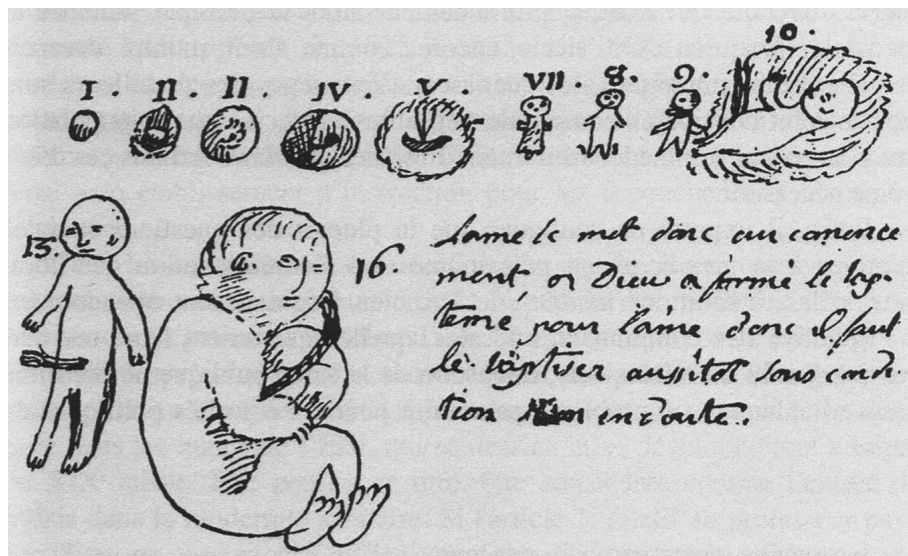 10.
I. II. III. IV. V. VII 8. 9.
15. 16
Lame se met donc au comence
ment ou Dieu a formé le bap-
teme pour l'ame donc il faut
le baptiser aussitot sous condi
tion en doute.